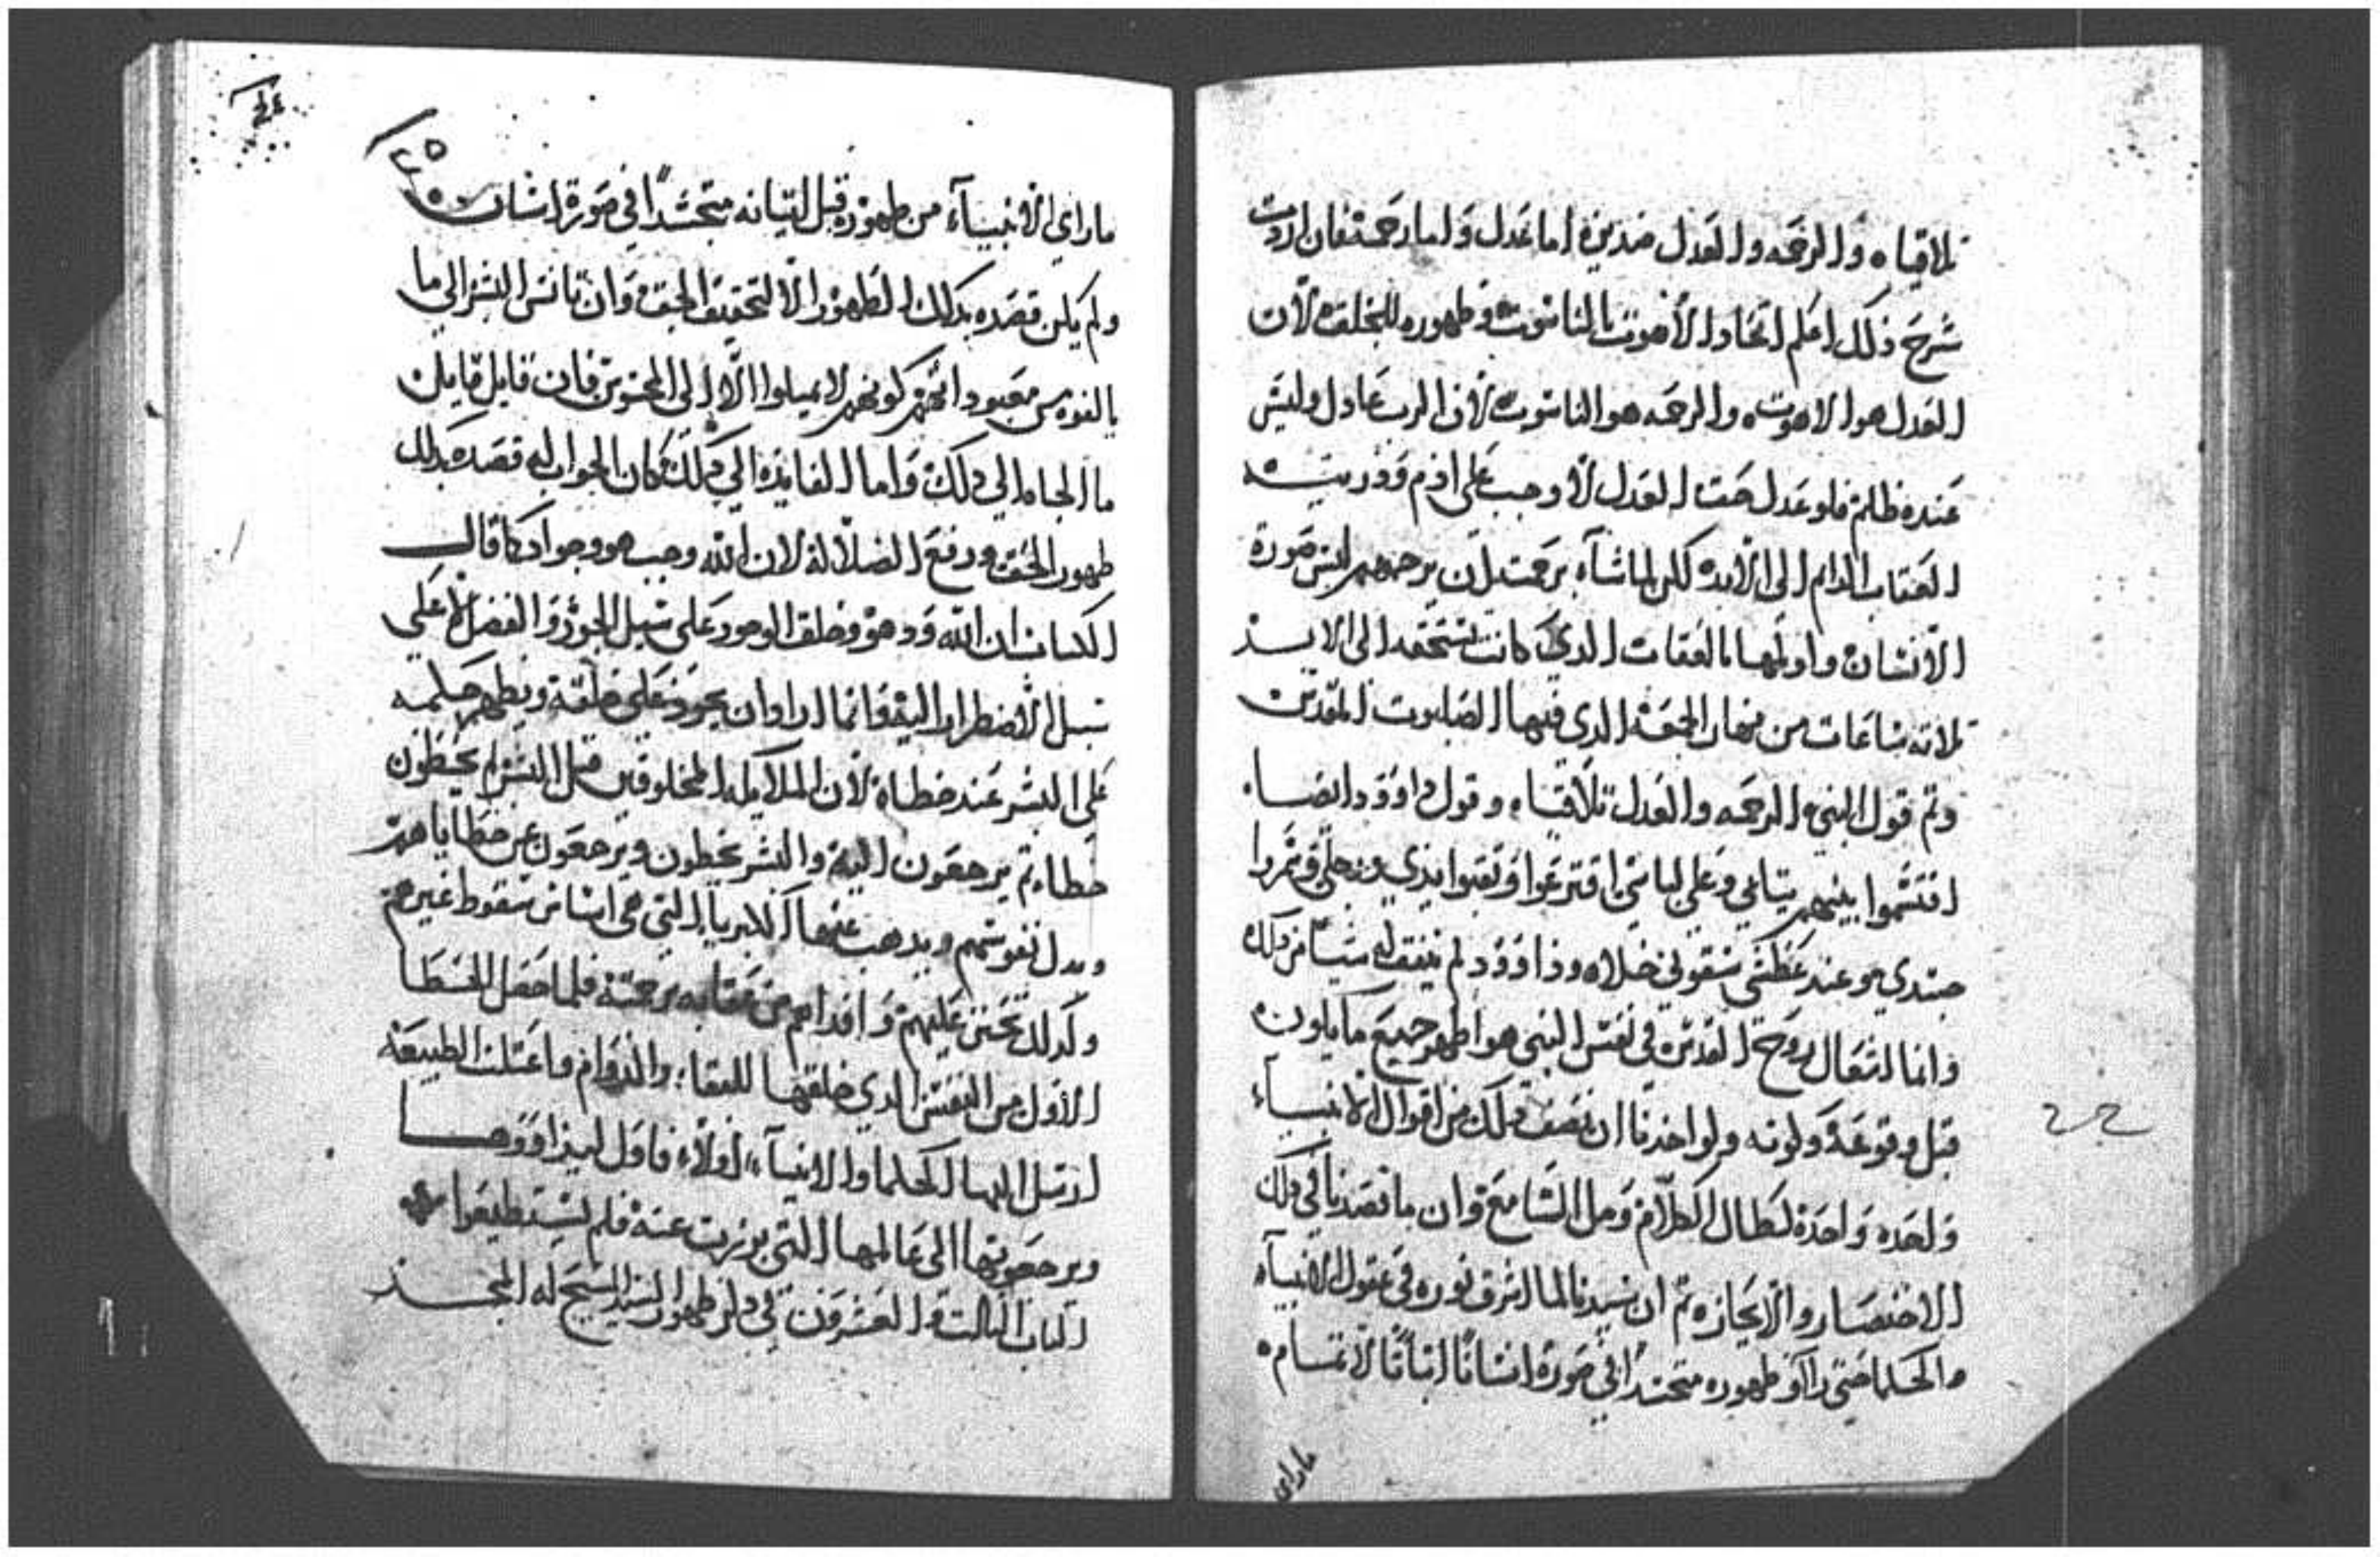 تلاقياه والرحمه والعدل ضدين اما عدل واما رحمة فان اردت
شرح ذلك اعلم اتحاد الاهوت بالناسوت وظهوره للخلقه لان
العدل هو الاهوت والرحمه هو الناسوت لان الرب عادل وليس
عنده ظلم فلو عدل حق العدل لاوجب على ادم وذريته
العقاب الدايم الى الابد لكن لما شآء برحمته ان يرحمهم لبس صورة
الانسان واولمها بالعقاب الدي كانت تستحقه الى الابد
تلاته ساعات من نهار الجمعه الدي فيها الصلبوت المقدس
وتم قول النبي الرحمه والعدل تلاقياه وقول داوود ايضا
اقتسموا بينهم تيابي وعلى لباسي اقترعوا وتقبوا يدي ورجلي ومرروا
جسدي وعند عطشي سقوني خلا وداوود لم يتفق له شيا من دلك
وانما لتعال روح القدس في نفس النبي هو اظهر جميع ما يكون
قبل وقوعه وكونه ولو اخدنا ان نصف دلك من اقوال الانبياء
واحده واحدة لطال الكلام ومل السامع وان ما قصدنا في دلك
الاختصار والايجاز تم ان سيدنا لما اشرق نوره في عقول الانبيآء
والحكما حتى راآو ظهوره متجسدا في صورة انسانا اتيانا لاتسام
ماراي
٤٥
ماراي الانبيآء من ظهوره قبل اتيانه متجسدا في صورة انسان
ولم يكن قصده بدلك الظهور الا لتحقيق الحق وان تانس البشر الى ما
بالنوس معبودا لهم كونهم لا يميلوا الا الى المحسوس فان قايل قايلن
ما الجاه الي دلك واما الفايده الي دلك كان الجواب له قصده بدلك
ظهور الحق ودفع الضلالة لان الله وجب هو وجواد كما قال
الكتاب ان الله ودهو وخلق الوجود على سبيل الجود والفضل لا على
سبيل الاضطرار اليه وانما اراد ان يجود على خلقة ويظهر حلمه
على البشر عند خطاه لان الملايكه المخلوقين قبل البشر لم يخطون
خطاء تم يرجعون اليه والبشر يخطون ويرجعون عن خطاياهم
وبدل نفوسهم ويدهب عنها الكبريا التي هي اساس سقوط غيرهم
وكدلك تحنن عليهم وافداهم من عقابه برحمته فلما حصل الخطا
الاول من النفس الدي خلقها للبقاء والدوام واعتلت الطبيعة
ارسل اليها الحكما والانبيآء اولاء فاول ليداووها
ويرجعونها الى عالمها التي برزت عنه فلم يستطيعوا
الباب التالت والعشرون في دكر ظهور السيد المسيح له المجد